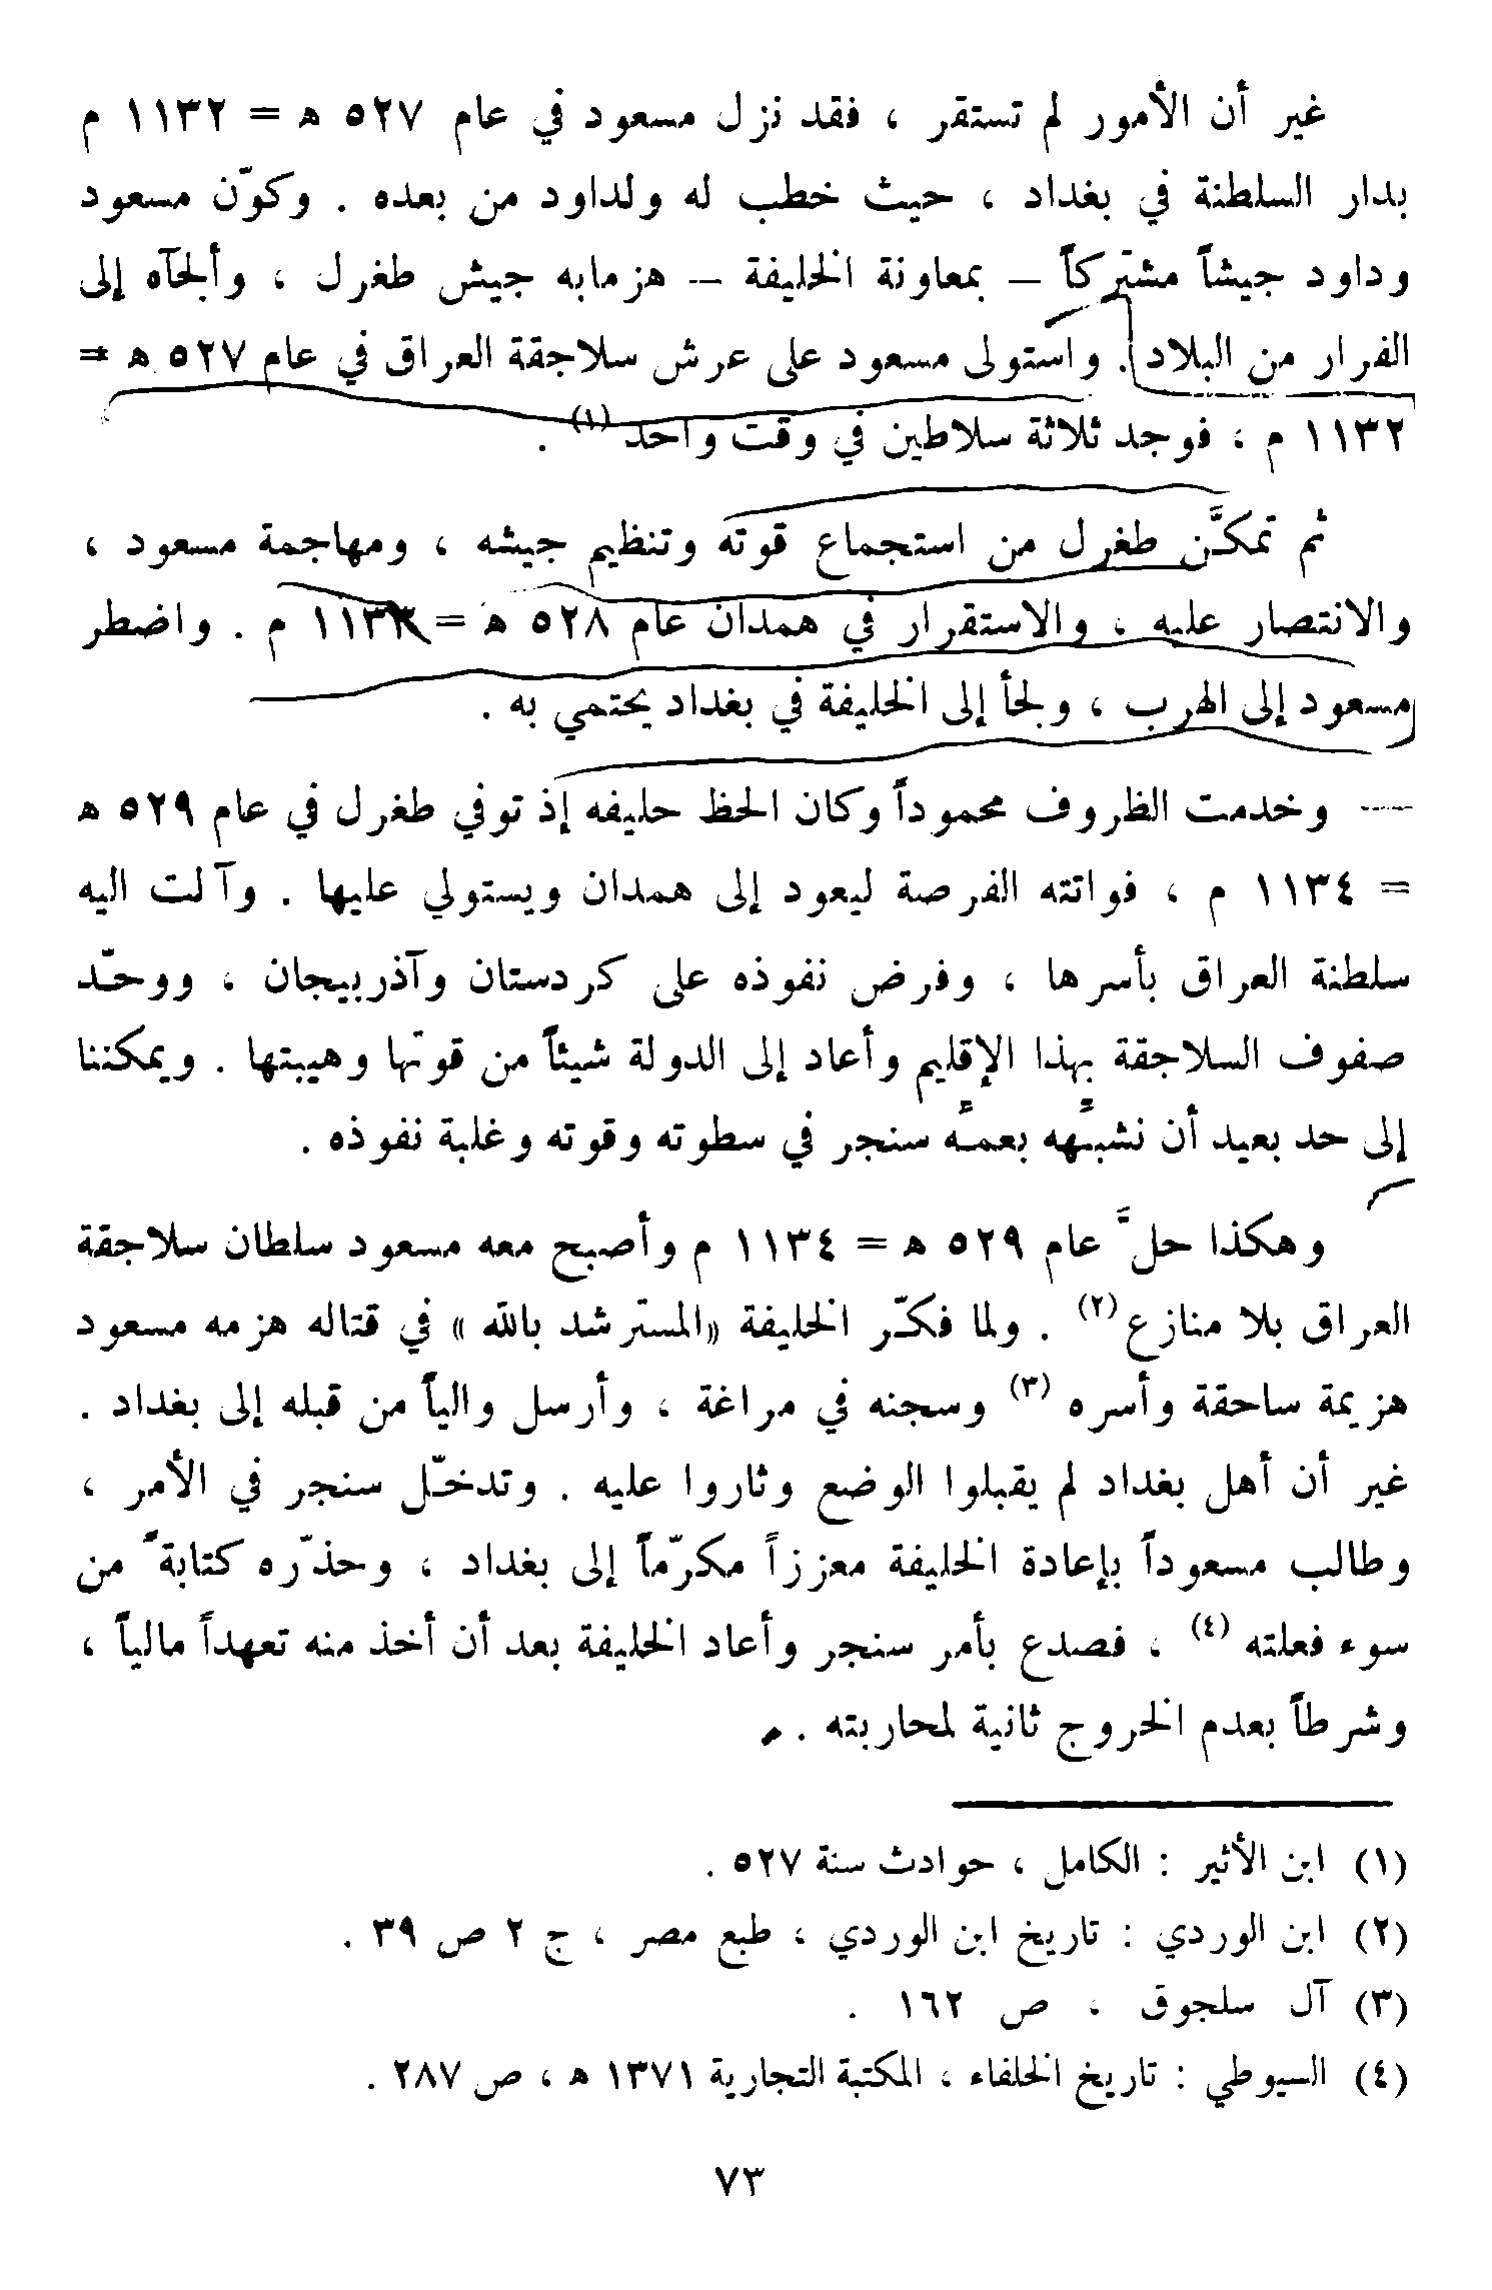 غير أن الأمور لم تستقر ، فقد نزل مسعود في عام ٥٢٧ ه = ١١٣٢ م
بدار السلطنة في بغداد ، حيث خطب له ولداود من بعده . وكوّن مسعود
وداود جيشاً مشتركاً – بمعاونة الخليفة – هزمابه جيش طغرل ، وألجآه إلى
الفرار من البلاد . واستولى مسعود على عرش سلاجقة العراق في عام ٥٢٧ ه =
١١٣٢ م ، فوجد ثلاثة سلاطين في وقت واحد (١) .
ثم تمكَّن طغرل من استجماع قوته وتنظيم جيشه ، ومهاجمة مسعود ،
والانتصار عليه ، والاستقرار في همدان عام ٥٢٨ ه = ١١٣٣ م . واضطر
مسعود إلى الهرب ، ولجأ إلى الخليفة في بغداد يحتمي به .
وخدمت الظروف محموداً وكان الحظ حليفه إذ توفي طغرل في عام ٥٢٩ ه
= ١١٣٤ م ، فواتته الفرصة ليعود إلى همدان ويستولي عليها . وآلت اليه
سلطنة العراق بأسرها ، وفرض نفوذه على كردستان وآذربيجان ، ووحّد
صفوف السلاجقة بهذا الإقليم وأعاد إلى الدولة شيئاً من قوتها وهيبتها . ويمكننا
إلى حد بعيد أن نشبِّهه بعمِّه سنجر في سطوته وقوته وغلبة نفوذه .
وهكذا حلَّ عام ٥٢٩ ه = ١١٣٤ م وأصبح معه مسعود سلطان سلاجقة
العراق بلا منازع (٢) . ولما فكّر الخليفة «المسترشد بالله » في قتاله هزمه مسعود
هزيمة ساحقة وأسره (٣) وسجنه في مراغة ، وأرسل والياً من قبله إلى بغداد .
غير أن أهل بغداد لم يقبلوا الوضع وثاروا عليه . وتدخّل سنجر في الأمر ،
وطالب مسعوداً بإعادة الخليفة معززاً مكرّماً إلى بغداد ، وحذّره كتابةً من
سوء فعلته (٤) ، فصدع بأمر سنجر وأعاد الخليفة بعد أن أخذ منه تعهداً مالياً ،
وشرطاً بعدم الخروج ثانية لمحاربته .
(١) ابن الأثير : الكامل ، حوادث سنة ٥٢٧ .
(٢) ابن الوردي : تاريخ ابن الوردي ، طبع مصر ، ج ٢ ص ٣٩ .
(٣) آل سلجوق ، ص ١٦٢ .
(٤) السيوطي : تاريخ الخلفاء ، المكتبة التجارية ١٣٧١ ه ، ص ٢٨٧ .
٧٣